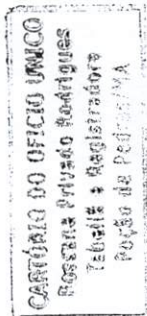 CARTÓRIO DO OFICIO UNICO
Rossana Privado Rodrigues
Tabeliã e Registradora
Poção de Pedras/MA